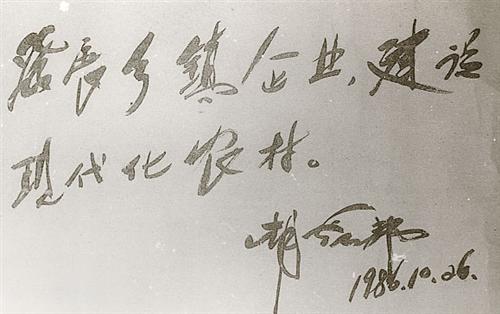 发展乡镇企业、建设
现代化农村。
胡启立
1986.10.26.